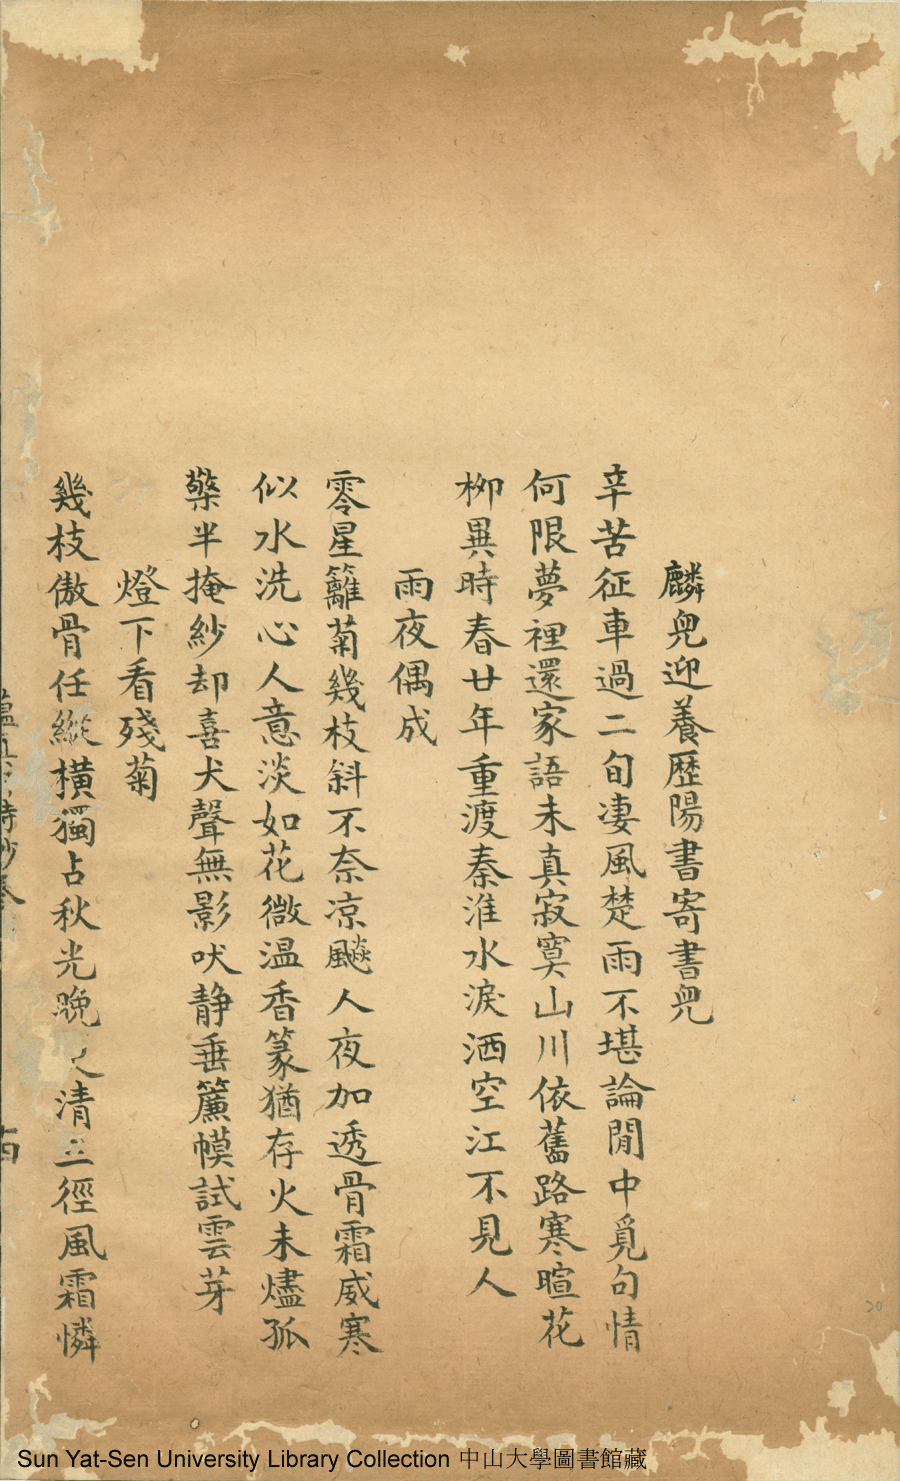 麟兒迎養歷陽書寄書兒
辛苦征車過二旬凄風楚雨不堪論閒中覓句情
何限夢裡還家語未真寂寞山川依舊路寒暄花
柳異時春廿年重渡秦淮水淚洒空江不見人
雨夜偶成
零星籬菊幾枝斜不奈凉飈人夜加透骨霜威寒
似水洗心人意淡如花微温香篆猶存火未燼孤
檠半掩紗却喜犬聲無影吠静垂簾幙試雲芽
燈下看殘菊
幾枝傲骨任縱横獨占秋光晚清三徑風霜憐
Sun Yat-Sen University Library Collection 中山大學圖書館藏
20